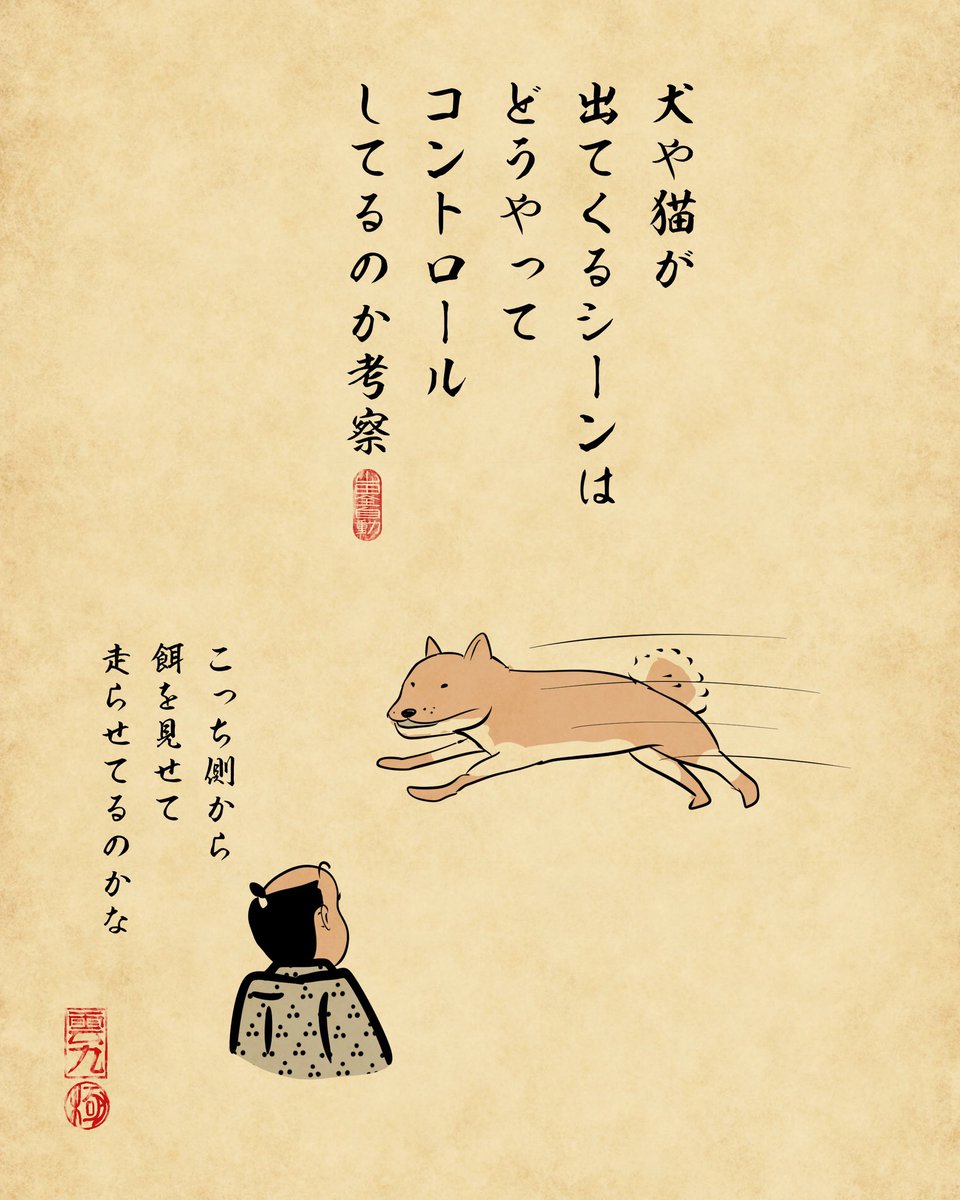 犬や猫が
出てくるシーンは
どうやって
コントロール
してるのか考察
こっち側から
餌を見せて
走らせてるのかな